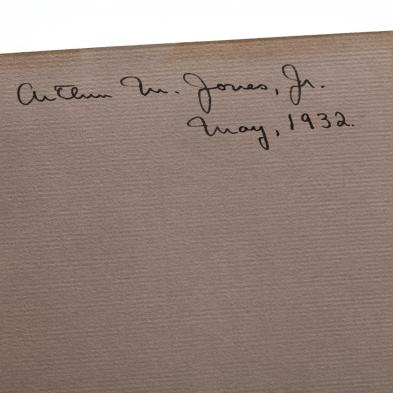 Arthur M. Jones, Jr.
May, 1932.